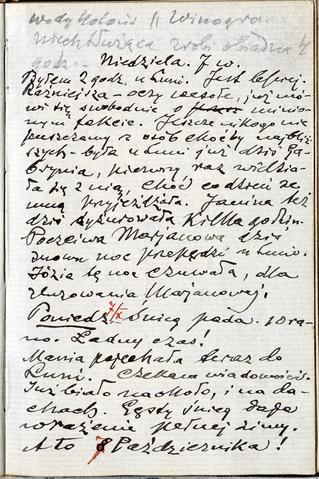 wody kolońs
niech służąca zrobi obiad na 4
godz.
Niedziela. 7 w.
Byłem 2 godz. u Luni. Jest lepiej.
Raźniejsza – oczy wesołe, już mó-
wi się swobodnie o minio-
nym fakcie. Jeszcze nikogo nie
puszczamy z osób choćby najbliż-
szych – była u Luni już dziś Ga-
brynia, pierwszy raz widzia-
ła się z nią, choć codzień ze
mną przyjeżdżała. Janina też
dziś dyżurowała kilka godzin.
Poczciwa Marjanowa dziś
znowu noc przepędzi u Luni.
Józia tę noc czuwała, dla
zluzowania Marjanowej.
Poniedz 7/X Śnieg pada. 10 ra-
no. Ładny czas!
Mania pojechała teraz do
Luni. Czekam wiadomości.
Już biało naokoło, i na da-
chach. Gęsty śnieg daje
wrażenie pełnej zimy.
A to 8 Października!